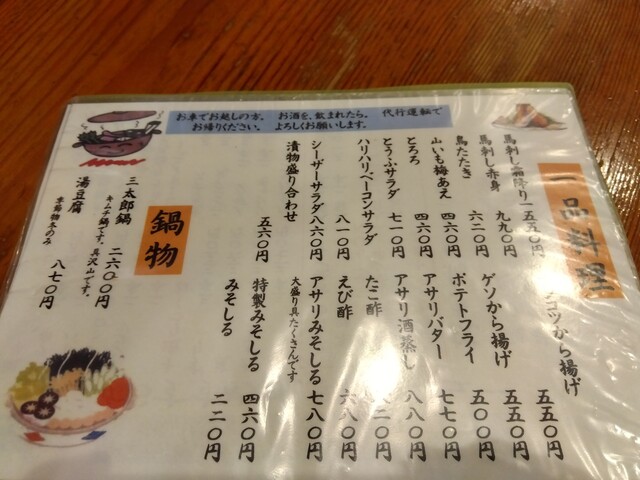 お車でお越しの方、 お酒を、飲まれたら、 代行運転で
お帰りください。 よろしくお願いします。
一品料理
馬刺し霜降り 一五五〇円
馬刺し赤身 九九〇円
鳥たたき 六二〇円
山いも梅あえ 四六〇円
とろろ 四六〇円
とうふサラダ 七一〇円
ハリハリベーコンサラダ 八一〇円
シーザーサラダ 八六〇円
漬物盛り合わせ 五六〇円
コツから揚げ 五五〇円
ゲソから揚げ 五五〇円
ポテトフライ 五〇〇円
アサリバター 七七〇円
アサリ酒蒸し 八八〇円
たこ酢 二〇円
えび酢 六八〇円
アサリみそしる 七八〇円
大盛り具たくさんです
特製みそしる 四六〇円
みそしる 二二〇円
鍋物
三太郎鍋 二六〇〇円
キムチ鍋です。具沢山です。
湯豆腐 八七〇円
季節物冬のみ